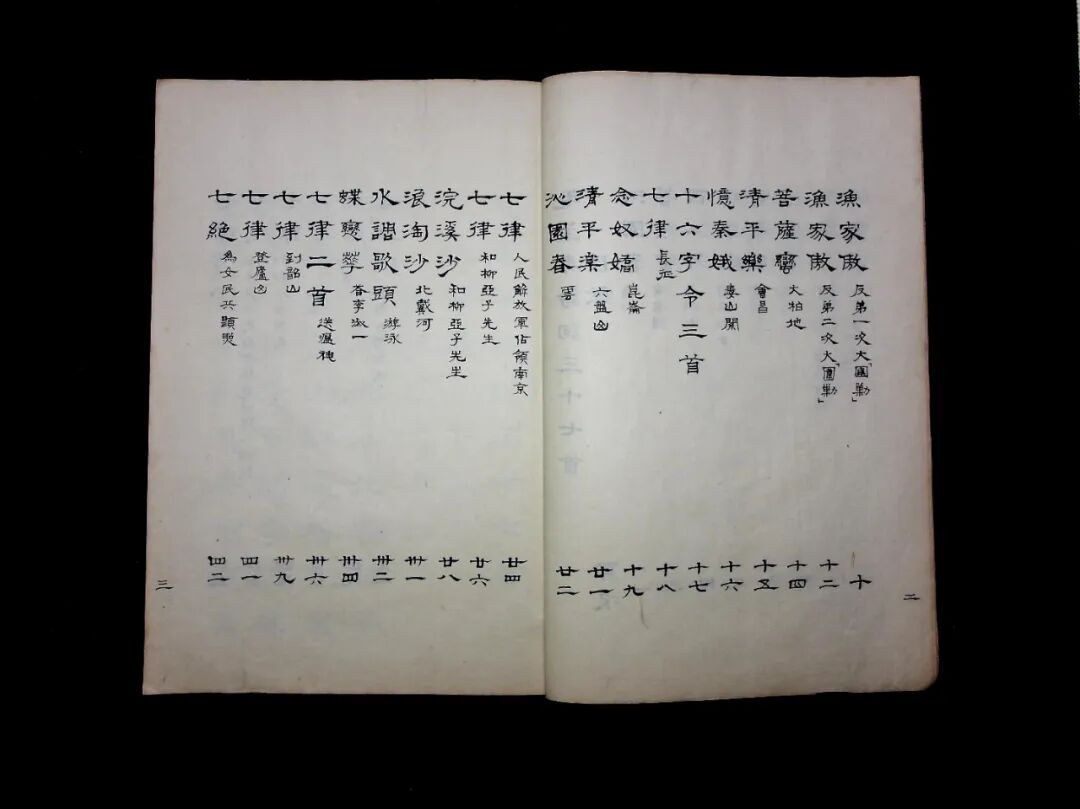 二
漁家傲 反第一次大「圍勦」 十
漁家傲 反第二次大「圍勦」 十二
菩薩蠻 大柏地 十四
清平樂 會昌 十五
憶秦娥 婁山關 十六
十六字令三首 十七
七律 長征 十八
念奴嬌 崑崙 十九
清平樂 六盤山 廿一
沁園春 雪 廿二
七律 人民解放軍佔領南京 廿四
七律 和柳亞子先生 廿六
浣溪沙 和柳亞子先生 廿八
浪淘沙 北戴河 卅一
水調歌頭 游泳 卅二
蝶戀花 答李淑一 卅四
七律二首 送瘟神 卅六
七律 到韶山 卅九
七律 登廬山 四一
七絕 為女民兵題照 四二
三